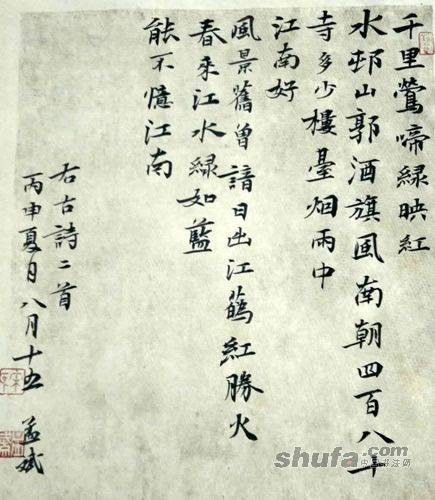 千里鶯啼緑映紅
水邨山郭酒旗風南朝四百八十
寺多少樓臺烟雨中
江南好
風景舊曾諳日出江蘤紅勝火
春来江水緑如藍
能不憶江南
右古詩二首
丙申夏日八月十五 孟斌
shufa.com